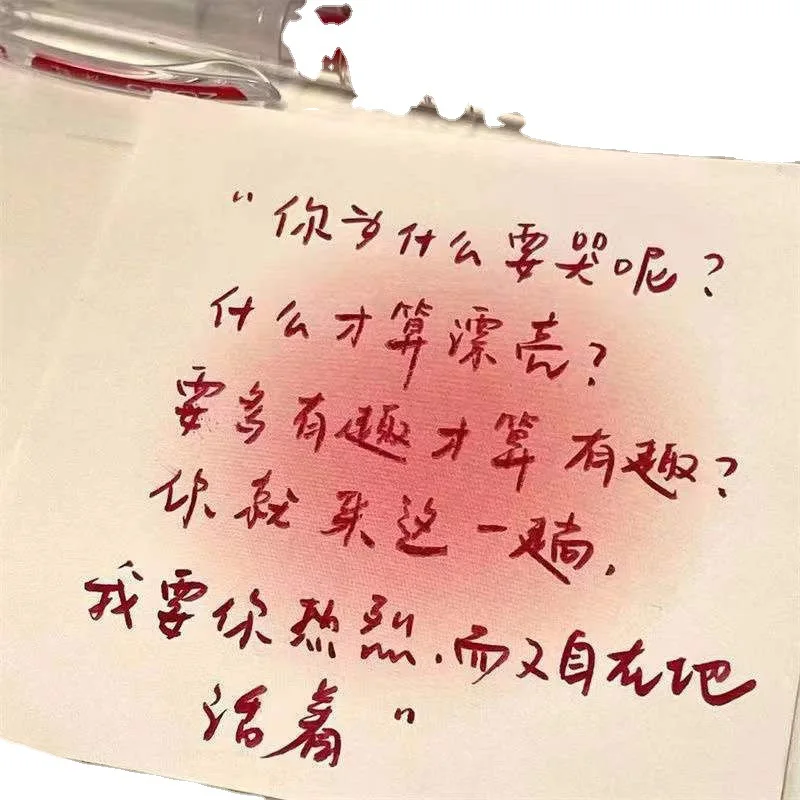 “你为什么要哭呢？
什么才算漂亮？
要多有趣才算有趣？
你就来这一趟，
我要你热烈，而又自在地
活着”